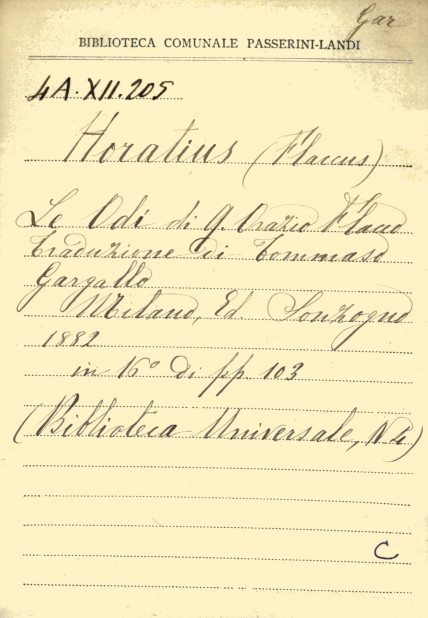 Gar
BIBLIOTECA COMUNALE PASSERINI-LANDI
4A.XII.205
Horatius (Flaccus)
Le Odi di Q. Orazio Flacco
traduzione di Tommaso
Gargallo
Milano, Ed. Sonzogno
1882
in 16° di pp. 103
(Biblioteca Universale, N 4)
C